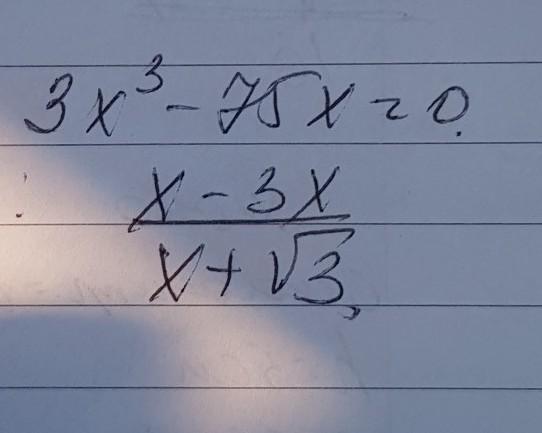 3x³ - 75x = 0.
: x - 3x
x + √3,